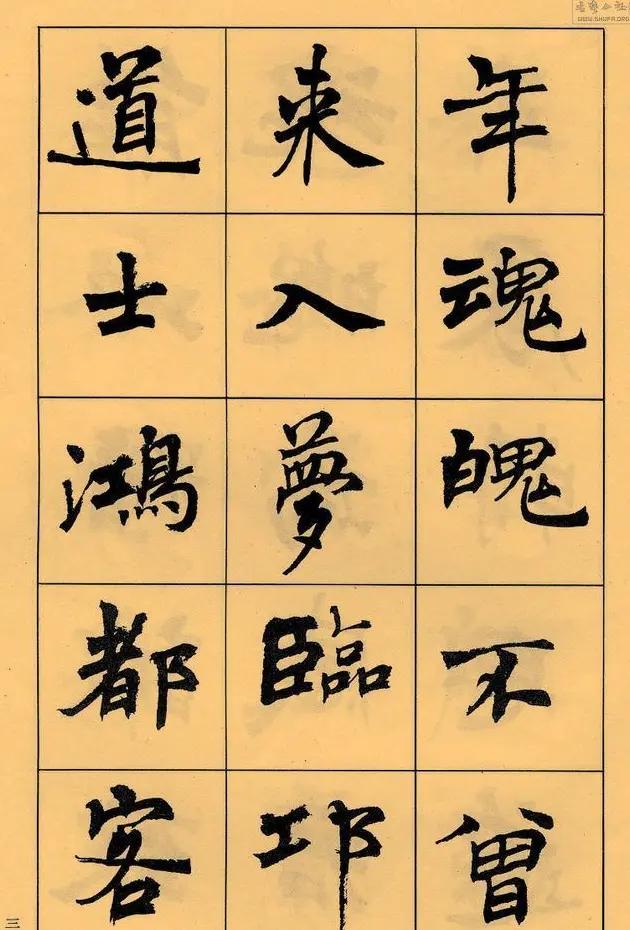 年魂魄不曾
来入夢臨邛
道士鴻都客
三
WWW.SHUFA.ORG